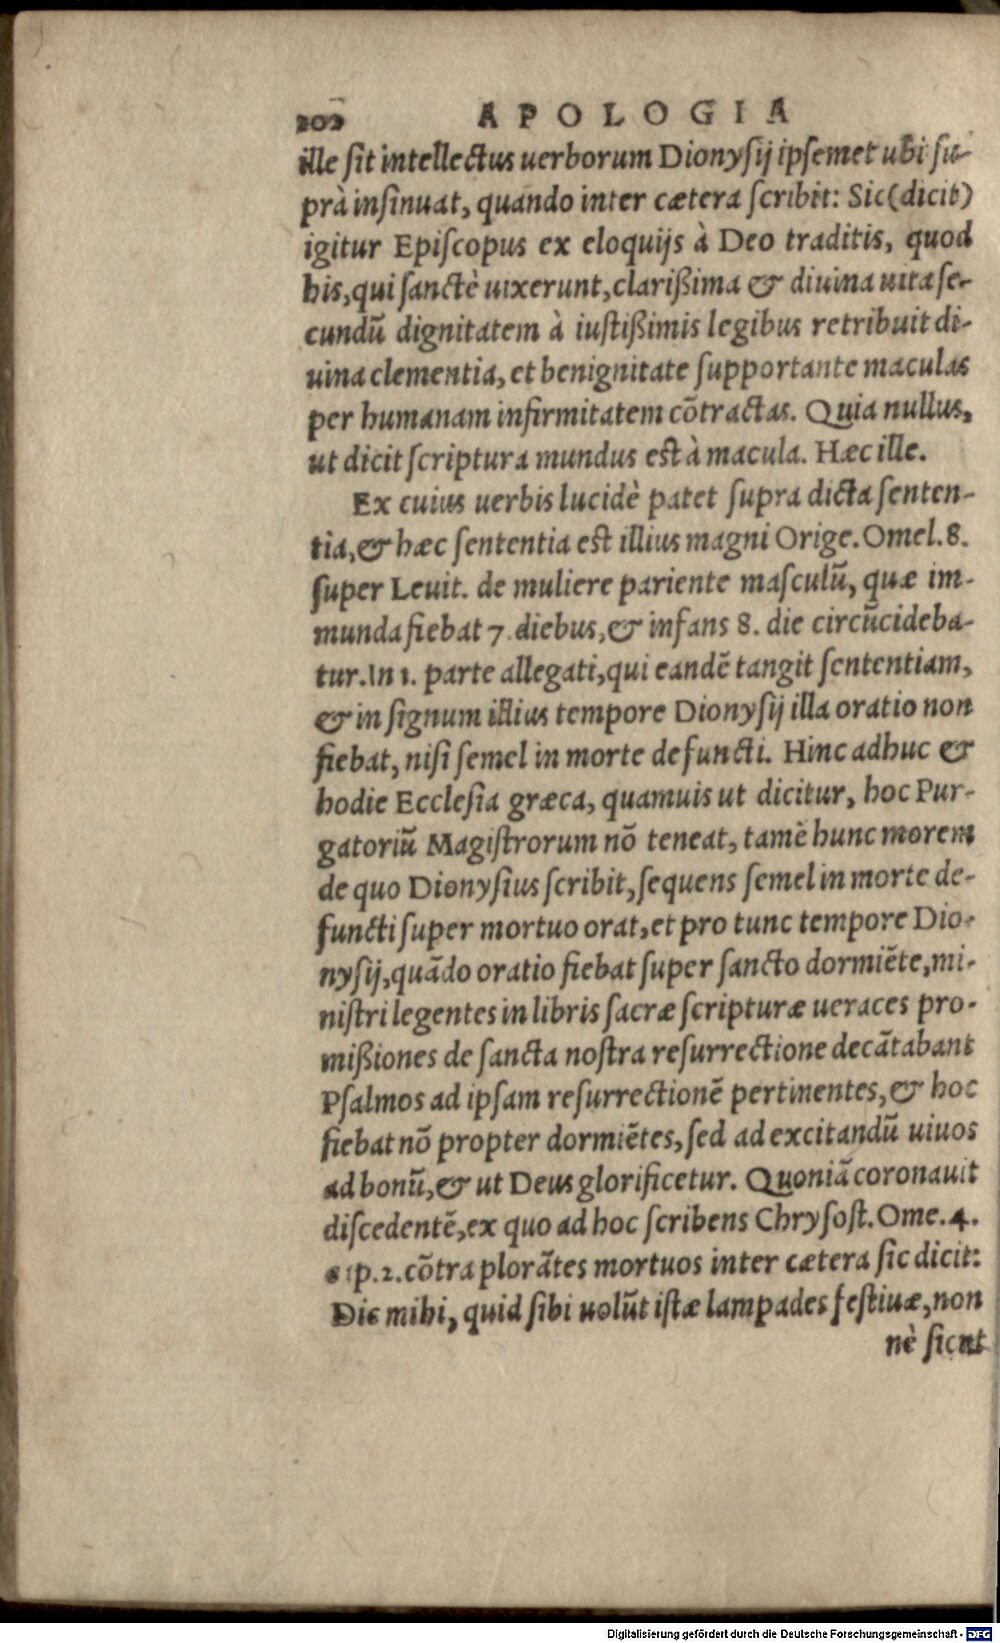 202 APOLOGIA
ille sit intellectus uerborum Dionysij ipsemet ubi su-
prà insinuat, quando inter cætera scribit: Sic (dicit)
igitur Episcopus ex eloquijs à Deo traditis, quod
his, qui sanctè uixerunt, clarißima & diuina uita se-
cundū dignitatem à iustißimis legibus retribuit di-
uina clementia, et benignitate supportante maculas
per humanam infirmitatem cōtractas. Quia nullus,
ut dicit scriptura mundus est à macula. Hæc ille.
Ex cuius uerbis lucidè patet supra dicta senten-
tia, & hæc sententia est illius magni Orige. Omel. 8.
super Leuit. de muliere pariente masculū, quæ im-
munda fiebat 7 diebus, & infans 8. die circūcideba-
tur. In 1. parte allegati, qui eandē tangit sententiam,
& in signum illius tempore Dionysij illa oratio non
fiebat, nisi semel in morte defuncti. Hinc adhuc &
hodie Ecclesia græca, quamuis ut dicitur, hoc Pur-
gatoriū Magistrorum nō teneat, tamē hunc morem
de quo Dionysius scribit, sequens semel in morte de-
functi super mortuo orat, et pro tunc tempore Dio-
nysij, quādo oratio fiebat super sancto dormiēte, mi-
nistri legentes in libris sacræ scripturæ ueraces pro-
mißiones de sancta nostra resurrectione decātabant
Psalmos ad ipsam resurrectionē pertinentes, & hoc
fiebat nō propter dormiētes, sed ad excitandū uiuos
ad bonū, & ut Deus glorificetur. Quoniā coronauit
discedentē, ex quo ad hoc scribens Chrysost. Ome. 4.
p. 2. cōtra plorātes mortuos inter cætera sic dicit:
Dic mihi, quid sibi uolūt istæ lampades festiuæ, non
nè sicut
Digitalisierung gefördert durch die Deutsche Forschungsgemeinschaft - DFG